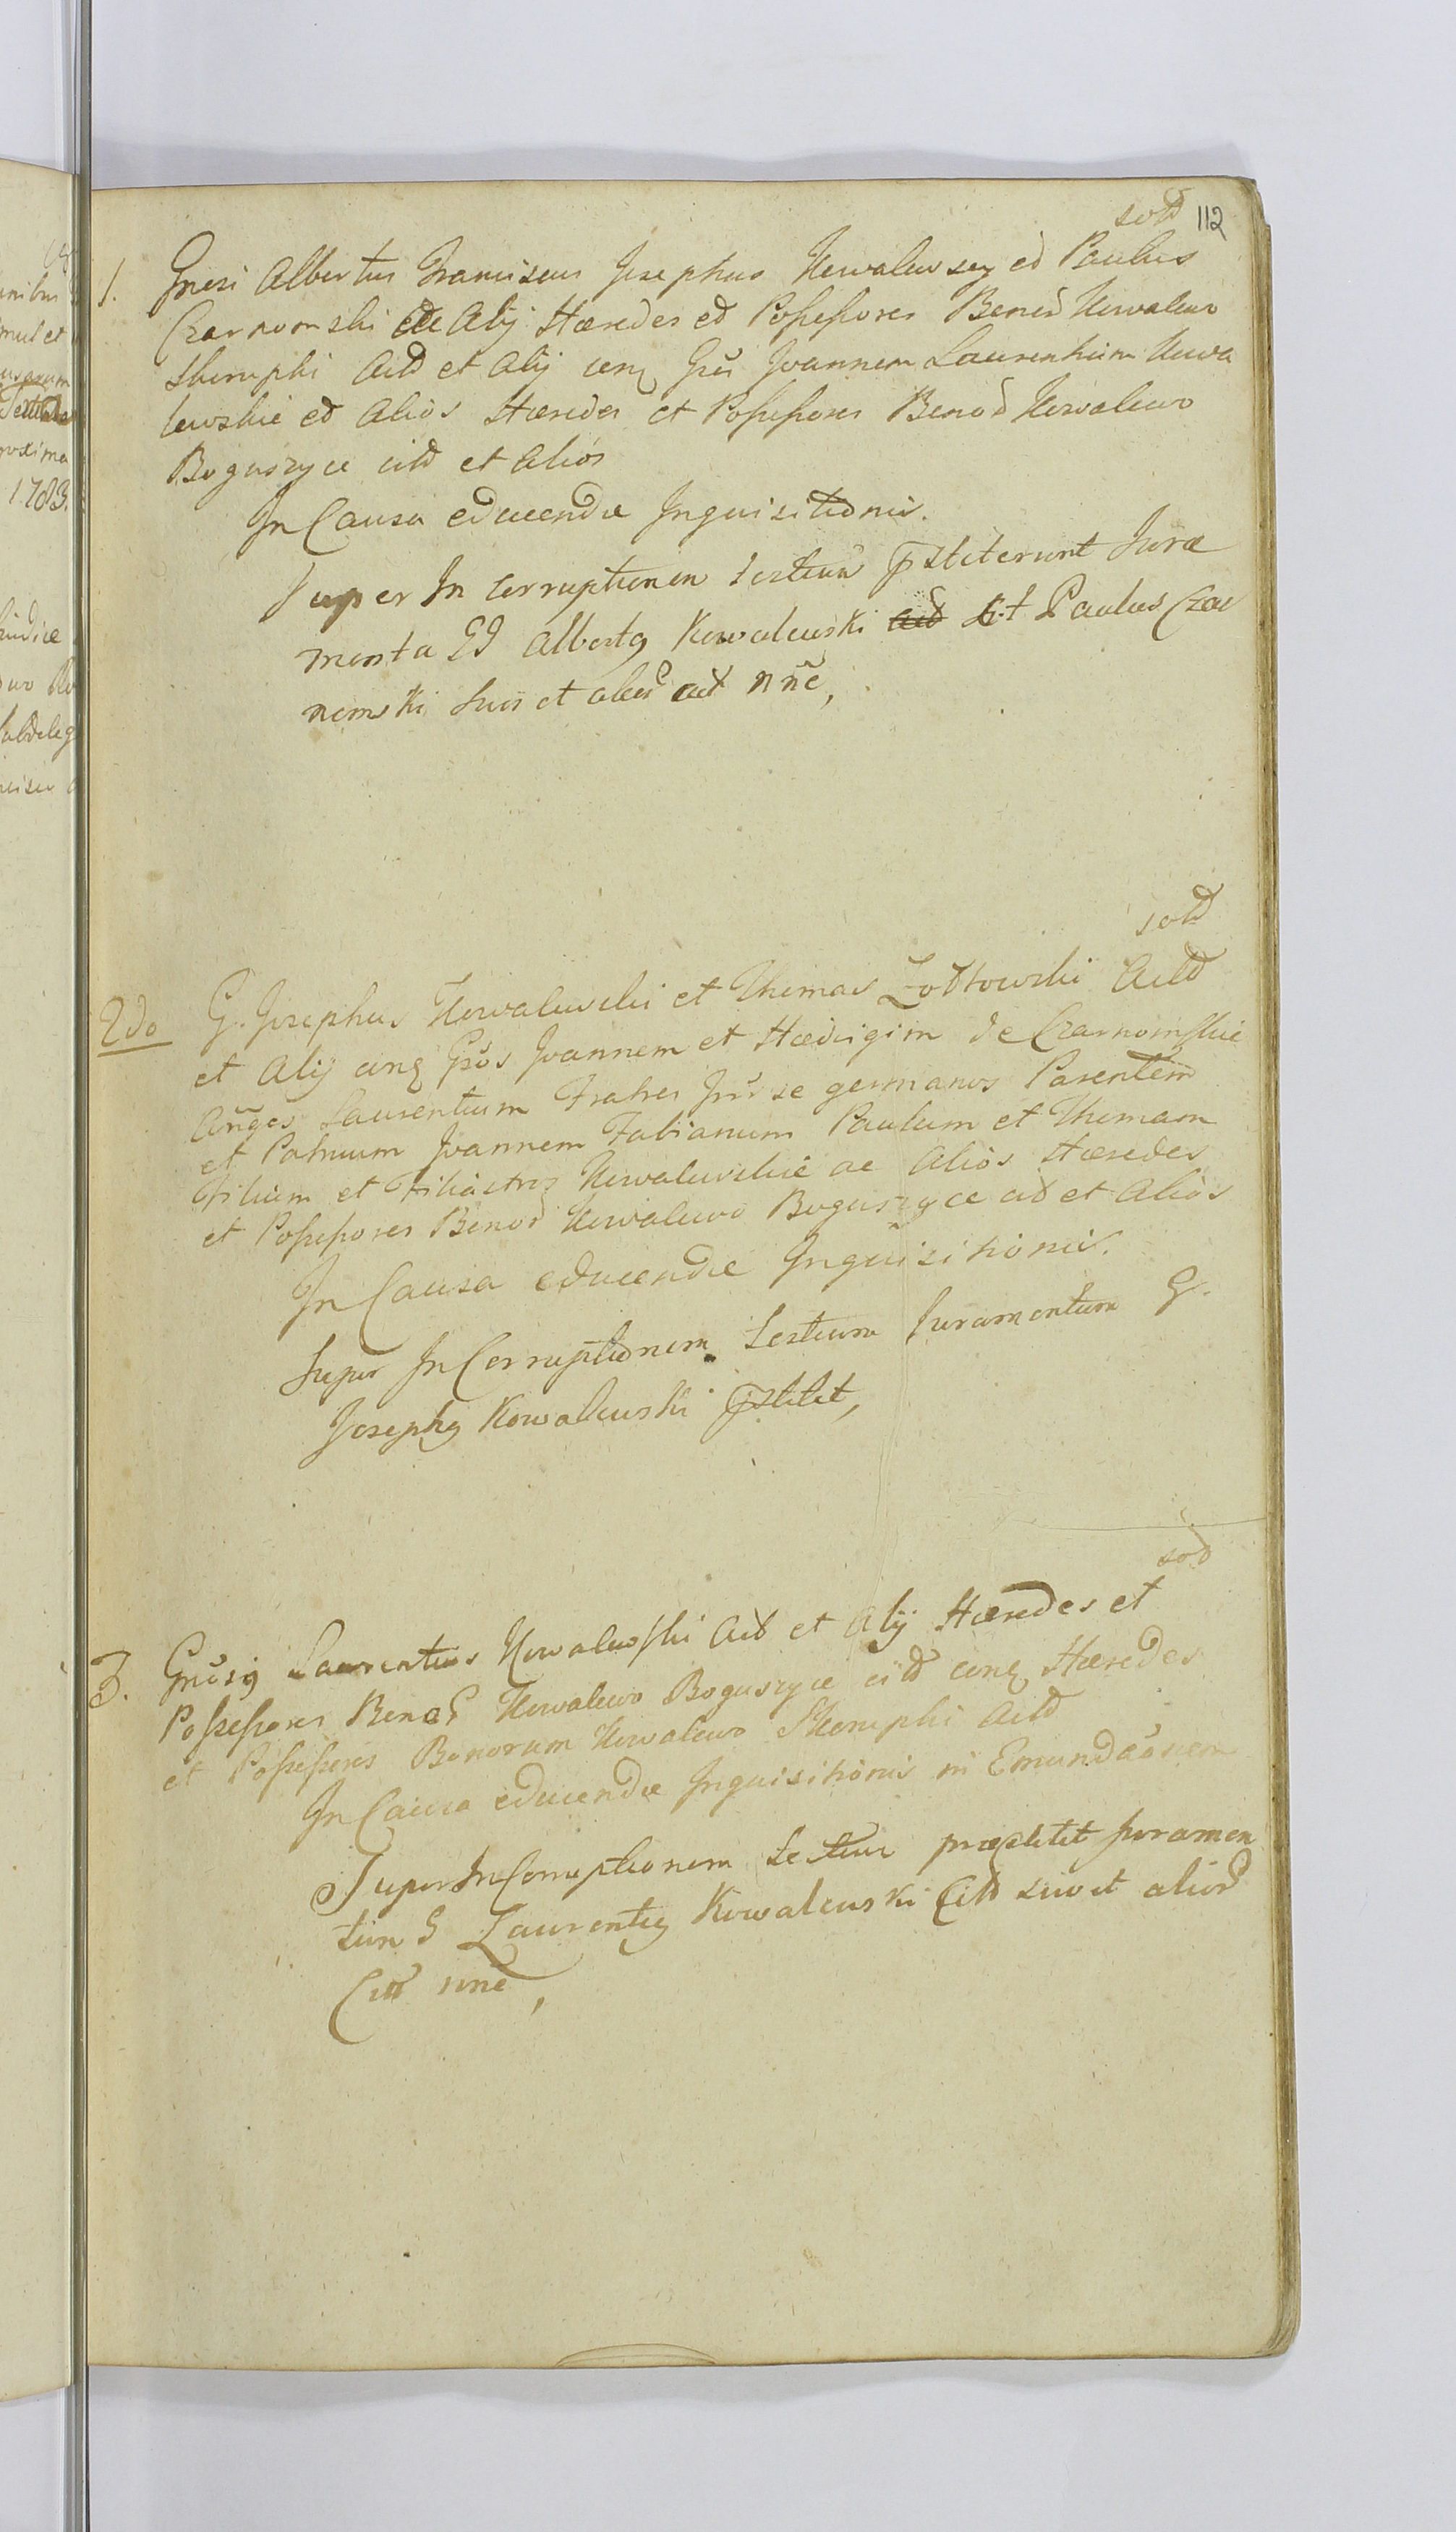 112
sold
1. Gnesi Albertus Franciscus Josephus Kowalewscy ed Paulus
Czarnomski Alij Hæredes ed Possessores Bonod Kowalewo
Skorupki Actt et Alij cnq Joannem Laurentium Kowa
lewskie ed Aliòs Hæredes et Possessores Bonod Kowalewo
Boguszyce citt et Aliòs
In Causa educendæ Inquisitionis.
Super In Corruptionem testium pstiterunt Jura
menta GG Albertq Kowalewski et Paulus Czar
nomski Suis et alior act nne,
sold
2do G. Josephus Kowalewski et Thomas Zottowski Actt
et Alij cnq Gsos Joannem et Hedvigim de Czarnomskie
Cnges Laurentium Fratres se germanos Parentem
et Patruum Joannem Fabianum Paulum et Thomam
Filium et Filiastros Kowalewskie ac Aliòs Hæredes
et Possessores Bonod Kowalewo Boguszyce cit et Aliòs
In Causa educendæ Inquisitionis.
Super In Corruptionem Testium Juramentum G.
Josephq Kowalewski pstitit,
sod
3. Gnusq Laurentius Kowalewski Act et Alij Hæredes et
Possessores Bonod Kowalewo Boguszyce citt cnq Hæredes
et Possessores Bonorum Kowalewo Skorupki Actt
In Causa educendæ Inquisitionis in Emundaonem
Super In Corruptionem Testium præstitit Juramen
tum G Laurentiq Kowalewski Citt suo et alior
Citt nne,